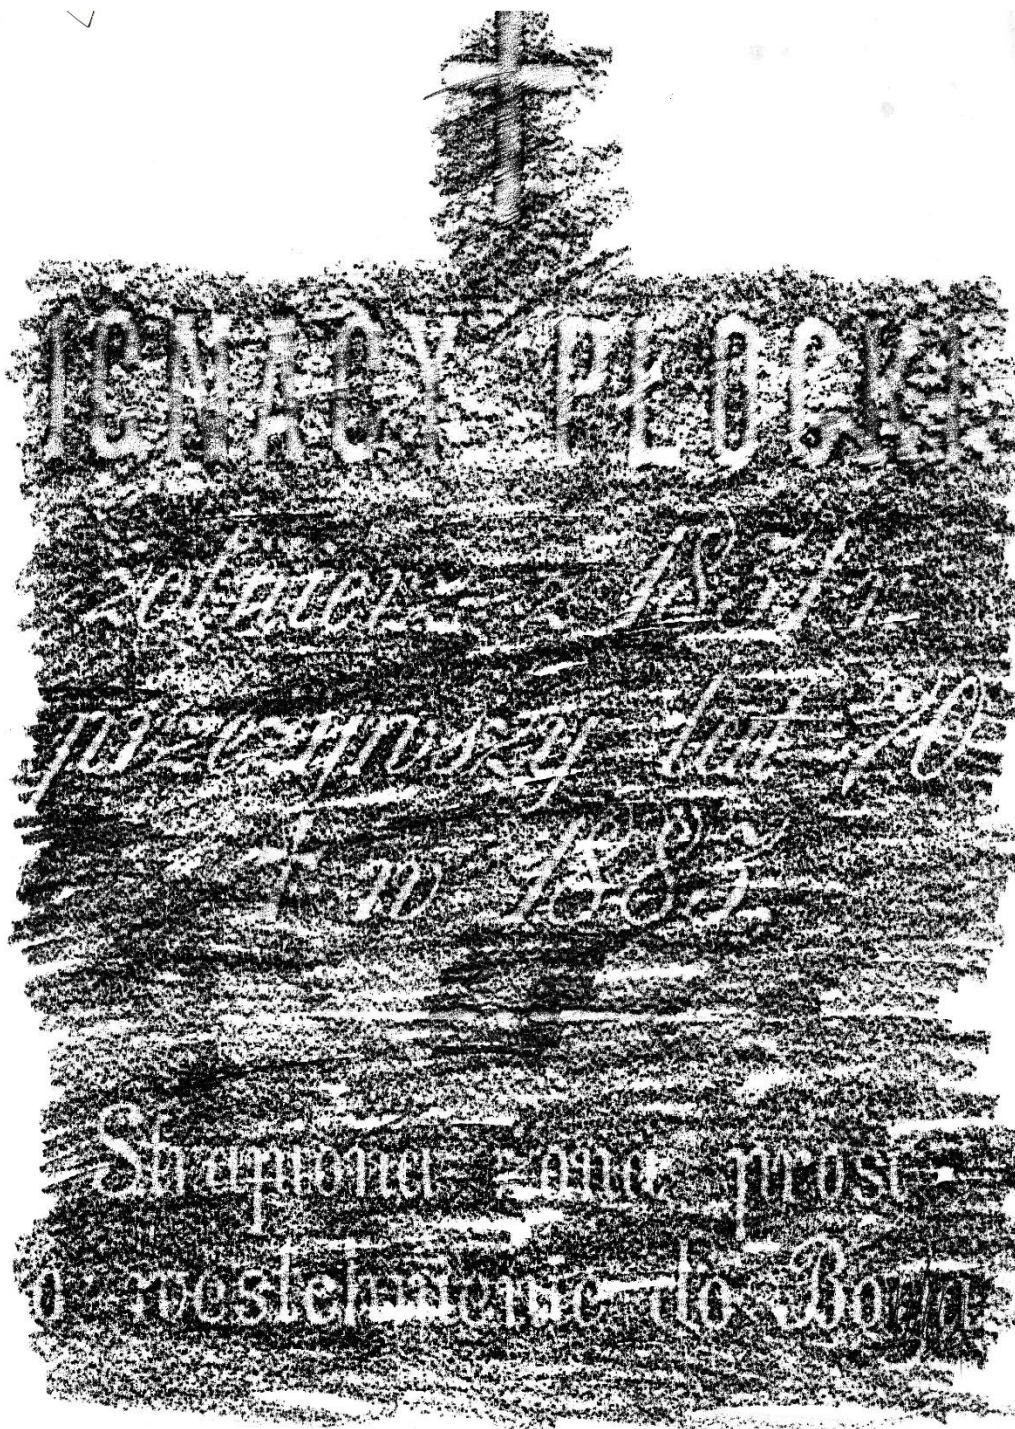 IGNACY PŁOCKI
żołnierz z 1831 r.
przeżywszy lat 70
† w 1885
Strapiona żona prosi
o westchnienie do Boga